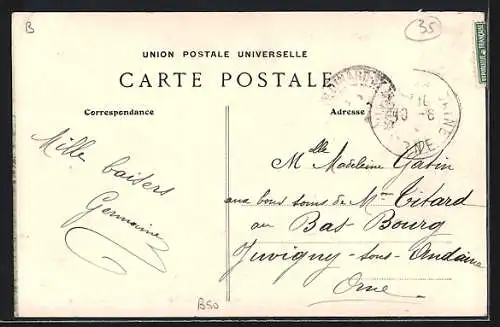 B
35
UNION POSTALE UNIVERSELLE
CARTE POSTALE
Correspondance
Adresse
Mille baisers
Germaine
Mlle Madeleine Gatin
aux bons soins de Mme Titard
au Bas-Bourg
Juvigny-sous-Andaine
Orne
B50